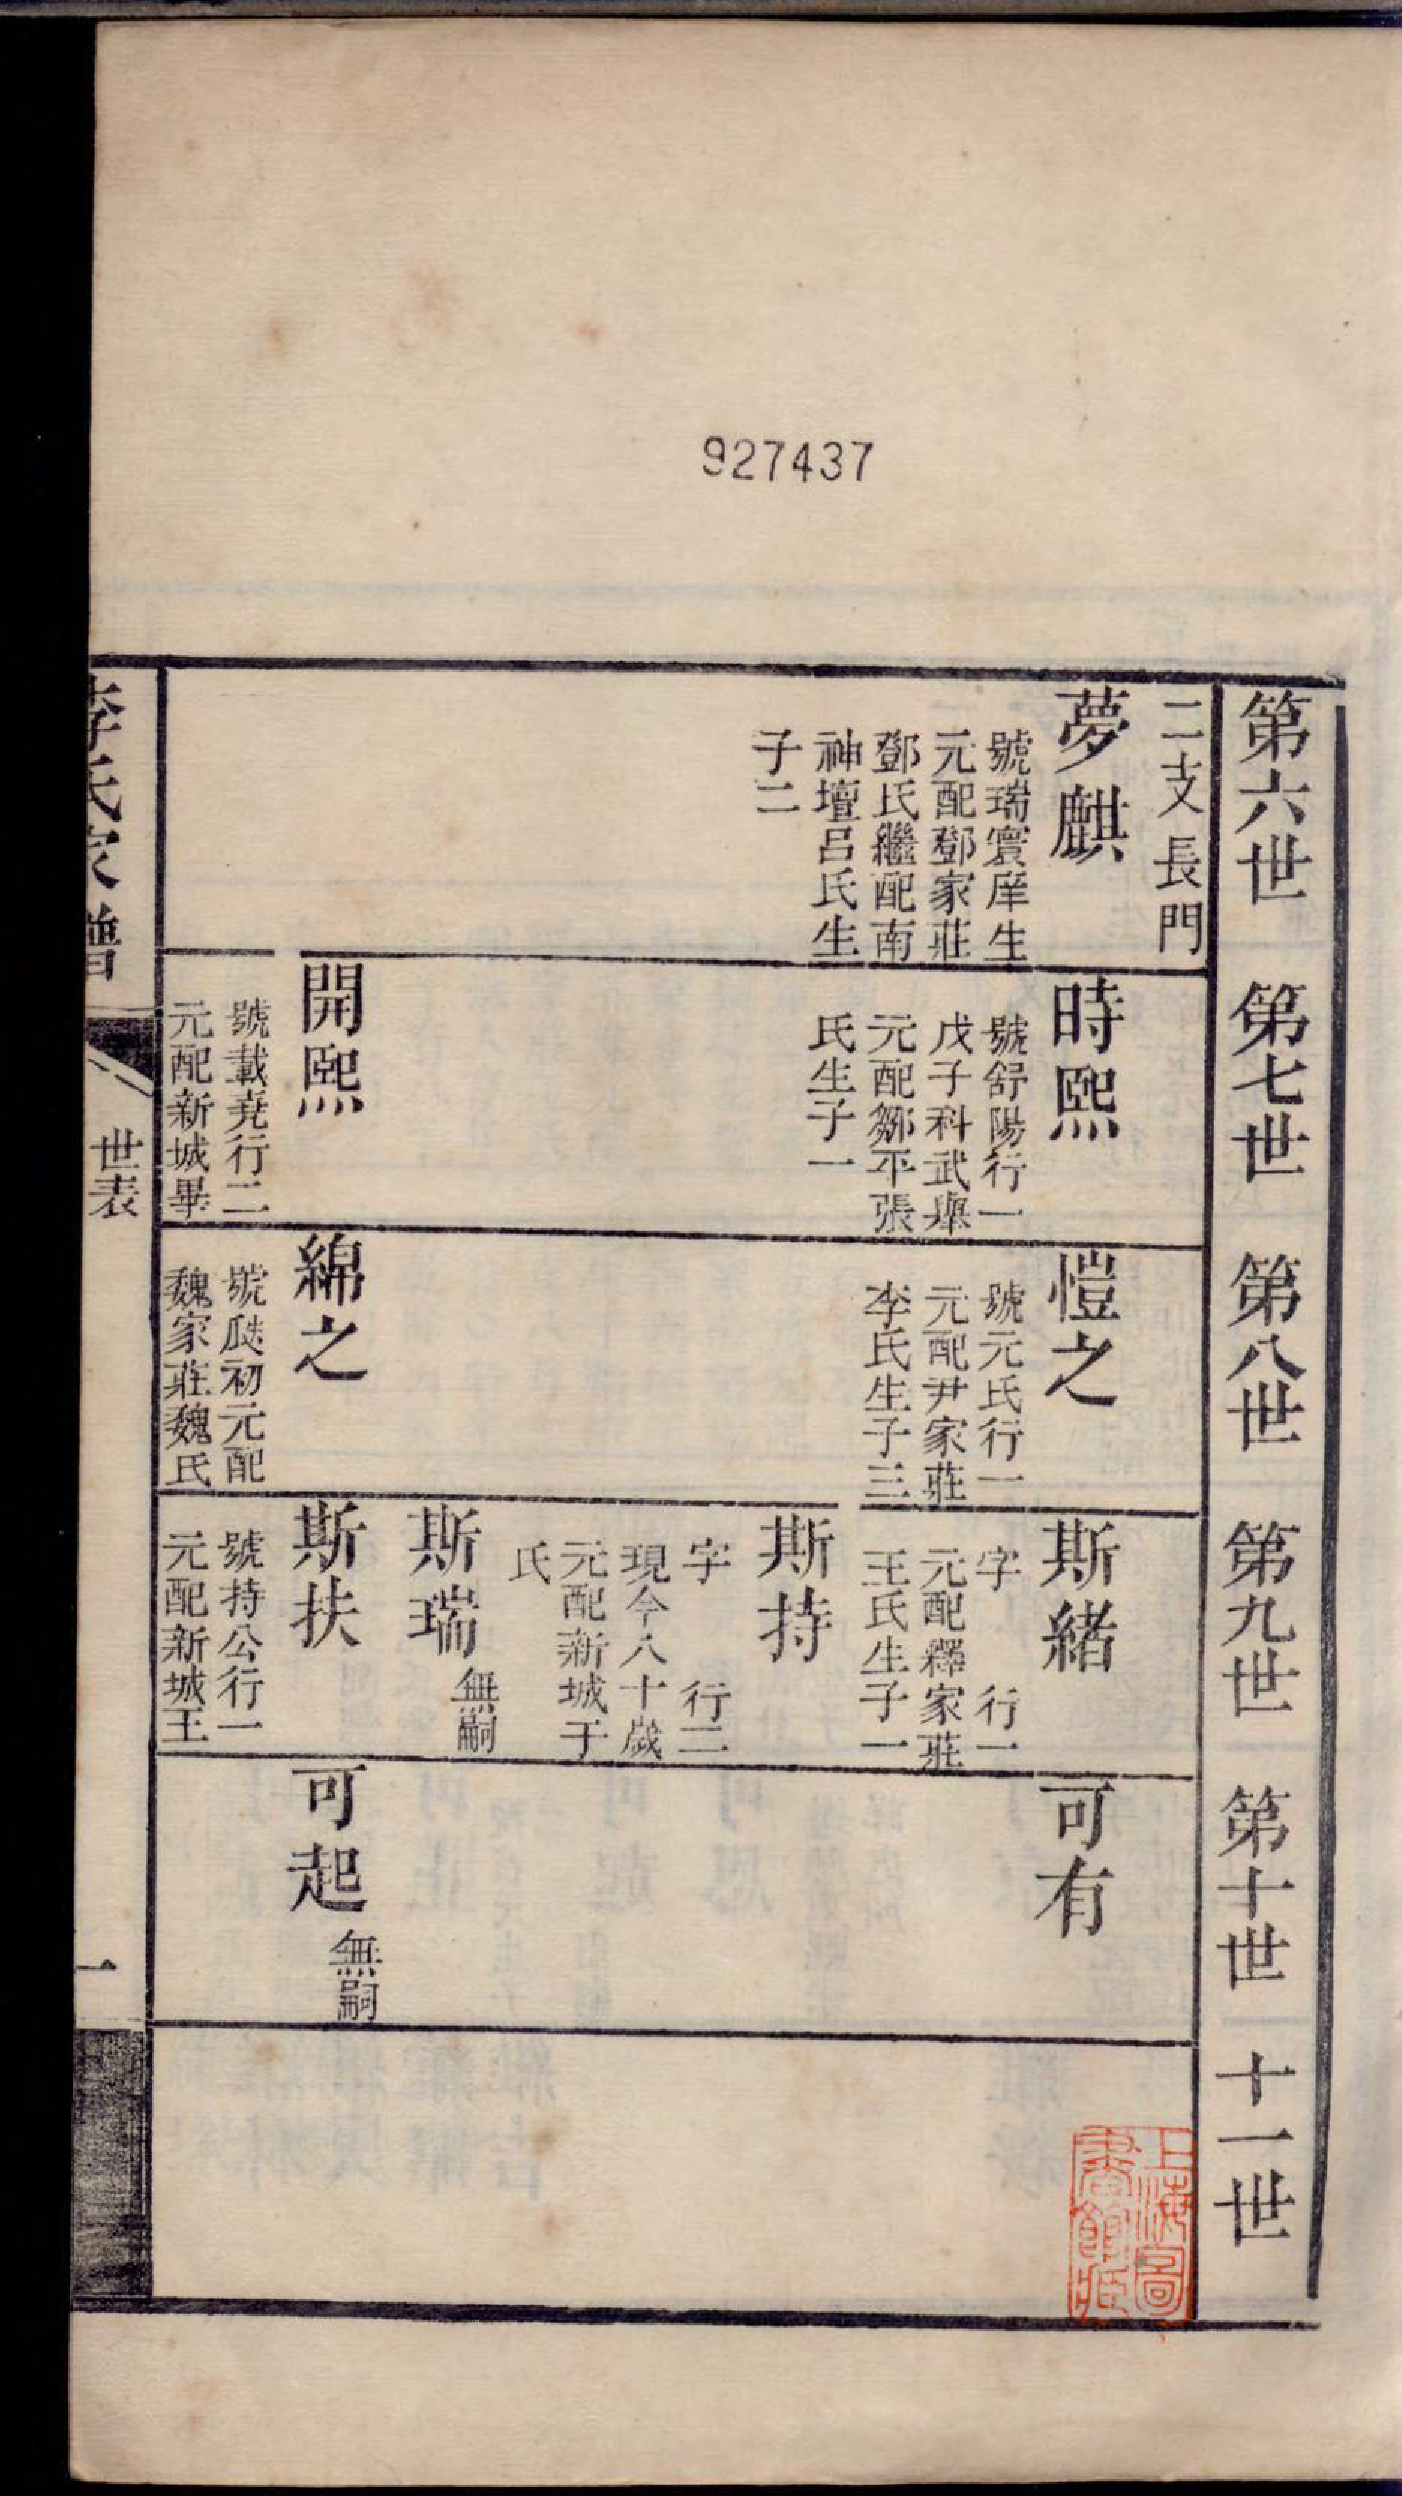 927437
第六世
第七世
第八世
第九世
第十世
十一世
二支長門
夢麒
號瑞寰庠生
元配鄧家莊
鄧氏繼配南
神壇呂氏生
子二
時熙
號舒陽行一
戊子科武舉
元配鄒平張
氏生子一
開熙
號載堯行二
元配新城畢
愷之
號元氏行一
元配尹家莊
李氏生子三
綿之
號瓞初元配
魏家莊魏氏
斯緒
字 行一
元配釋家莊
王氏生子一
斯持
字 行二
現今八十歲
元配新城于
氏
斯瑞
無嗣
斯扶
號持公行一
元配新城王
可有
可起
無嗣
李氏家譜
世表
一
上海圖
書館藏